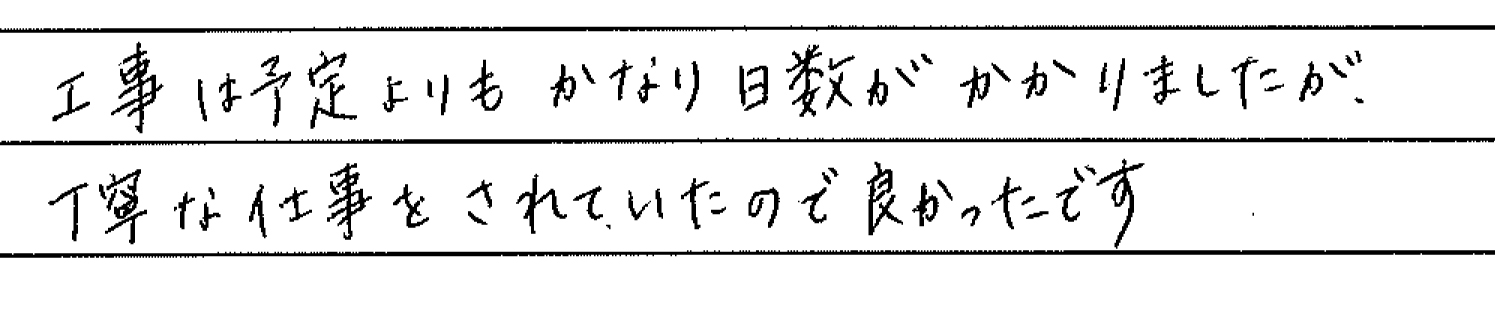 工事は予定よりもかなり日数がかかりましたが、
丁寧な仕事をされていたので良かったです